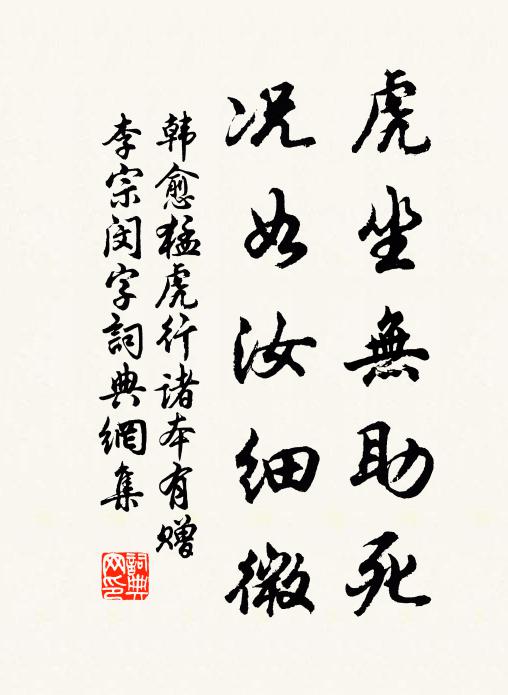 虎坐無助死
况如汝细微
韩愈猛虎行诸本有赠
李宗闵字詞典網集
詞典
网印